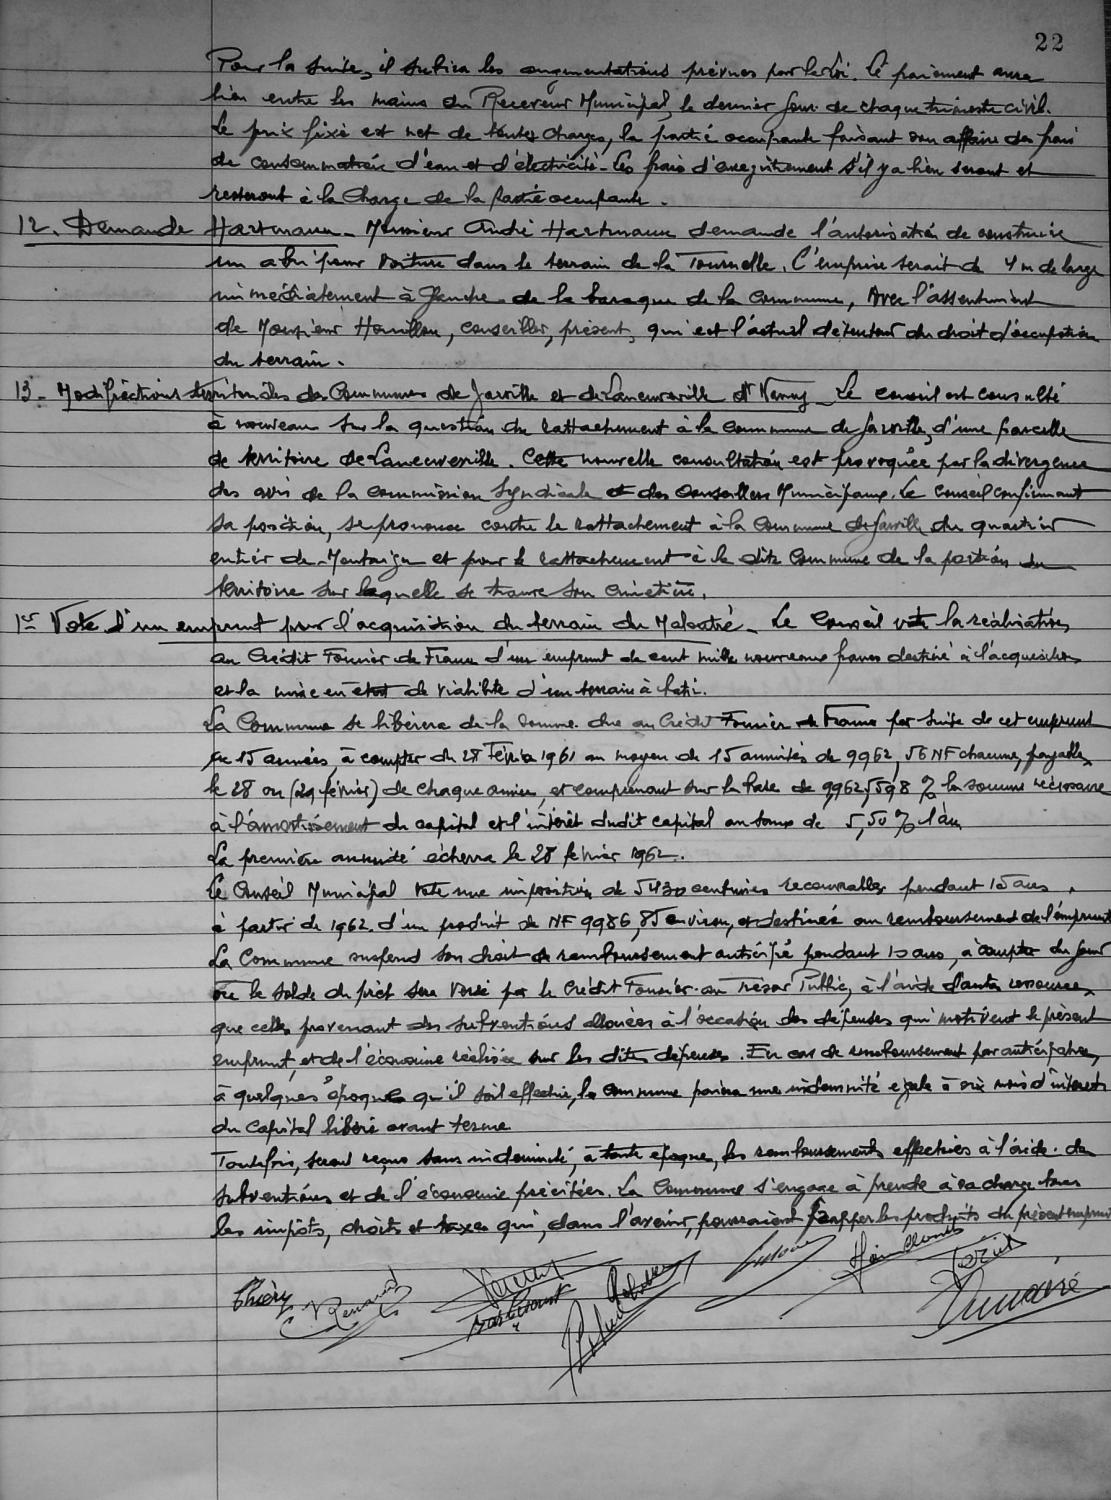 22
Pour la suite, il subira les augmentations prévues par la loi. Le paiement aura
lieu entre les mains du Receveur Municipal, le dernier jour de chaque trimestre civil.
Le prix fixé est net de toutes charges, la partie occupante faisant son affaire des frais
de consommation d'eau et d'électricité. Les frais d'enregistrement s'il y a lieu seront et
resteront à la charge de la partie occupante.
12. Demande Hartmann - Monsieur André Hartmann demande l'autorisation de construire
un abri pour voiture dans le terrain de la Tournelle. L'emprise serait de 4 m de large
immédiatement à gauche de la baraque de la commune, avec l'assentiment
de Monsieur Houillon, conseiller, présent, qui est l'actuel détenteur du droit d'occupation
du terrain.
13 - Modifications territoriales des Communes de Jarville et de Laneuveville dt Nancy - Le conseil est consulté
à nouveau sur la question du rattachement à la commune de Jarville, d'une parcelle
de territoire de Laneuveville. Cette nouvelle consultation est provoquée par la divergence
des avis de la commission syndicale et des Conseillers Municipaux. Le conseil confirmant
sa position, se prononce contre le rattachement à la Commune de Jarville du quartier
entier de Montaigu et pour le rattachement à la dite Commune de la portion du
territoire sur laquelle se trouve son cimetière.
1er Vote d'un emprunt pour l'acquisition du terrain du - Le Conseil vote la réalisation
au Crédit Foncier de France d'un emprunt de cent mille nouveaux francs destiné à l'acquisition
et la mise en état de viabilité d'un terrain à bâtir.
La Commune se libèrera de la somme due au Crédit Foncier de France par suite de cet emprunt
en 15 années, à compter du 28 Février 1961 au moyen de 15 annuités de 9962,56 NF chacune, payables
le 28 ou (29 février) de chaque année, et comprenant sur la base de 9,962,598 % la somme nécessaire
à l'amortissement du capital et l'intérêt dudit capital au taux de 5,50 % l'an
La première annuité écherra le 28 février 1962.
Le Conseil Municipal vote une imposition de 5430 centimes recouvrables pendant 15 ans,
à partir de 1962. d'un produit de NF 9986,85 environ, et destinée au remboursement de l'emprunt
La Commune suspend son droit de remboursement anticipé pendant 10 ans, à compter du jour
où le solde du prêt sera versé par le Crédit Foncier au Trésor Public, à l'aide d'autres ressources
que celles provenant des subventions allouées à l'occasion des dépenses qui motivent le présent
emprunt, et de l'économie réalisée sur les dites dépenses. En cas de remboursement par anticipation,
à quelques époques qu'il soit effectué, la commune paiera une indemnité égale à six mois d'intérêts
du capital libéré avant terme
Toutefois, seront reçus sans indemnité, à toute époque, les remboursements effectués à l'aide des
subventions et de l'économie précitées. La Commune s'engage à prendre à sa charge tous
les impôts, droits et taxes qui, dans l'avenir, pourraient frapper les produits du présent emprunt
Thiéry